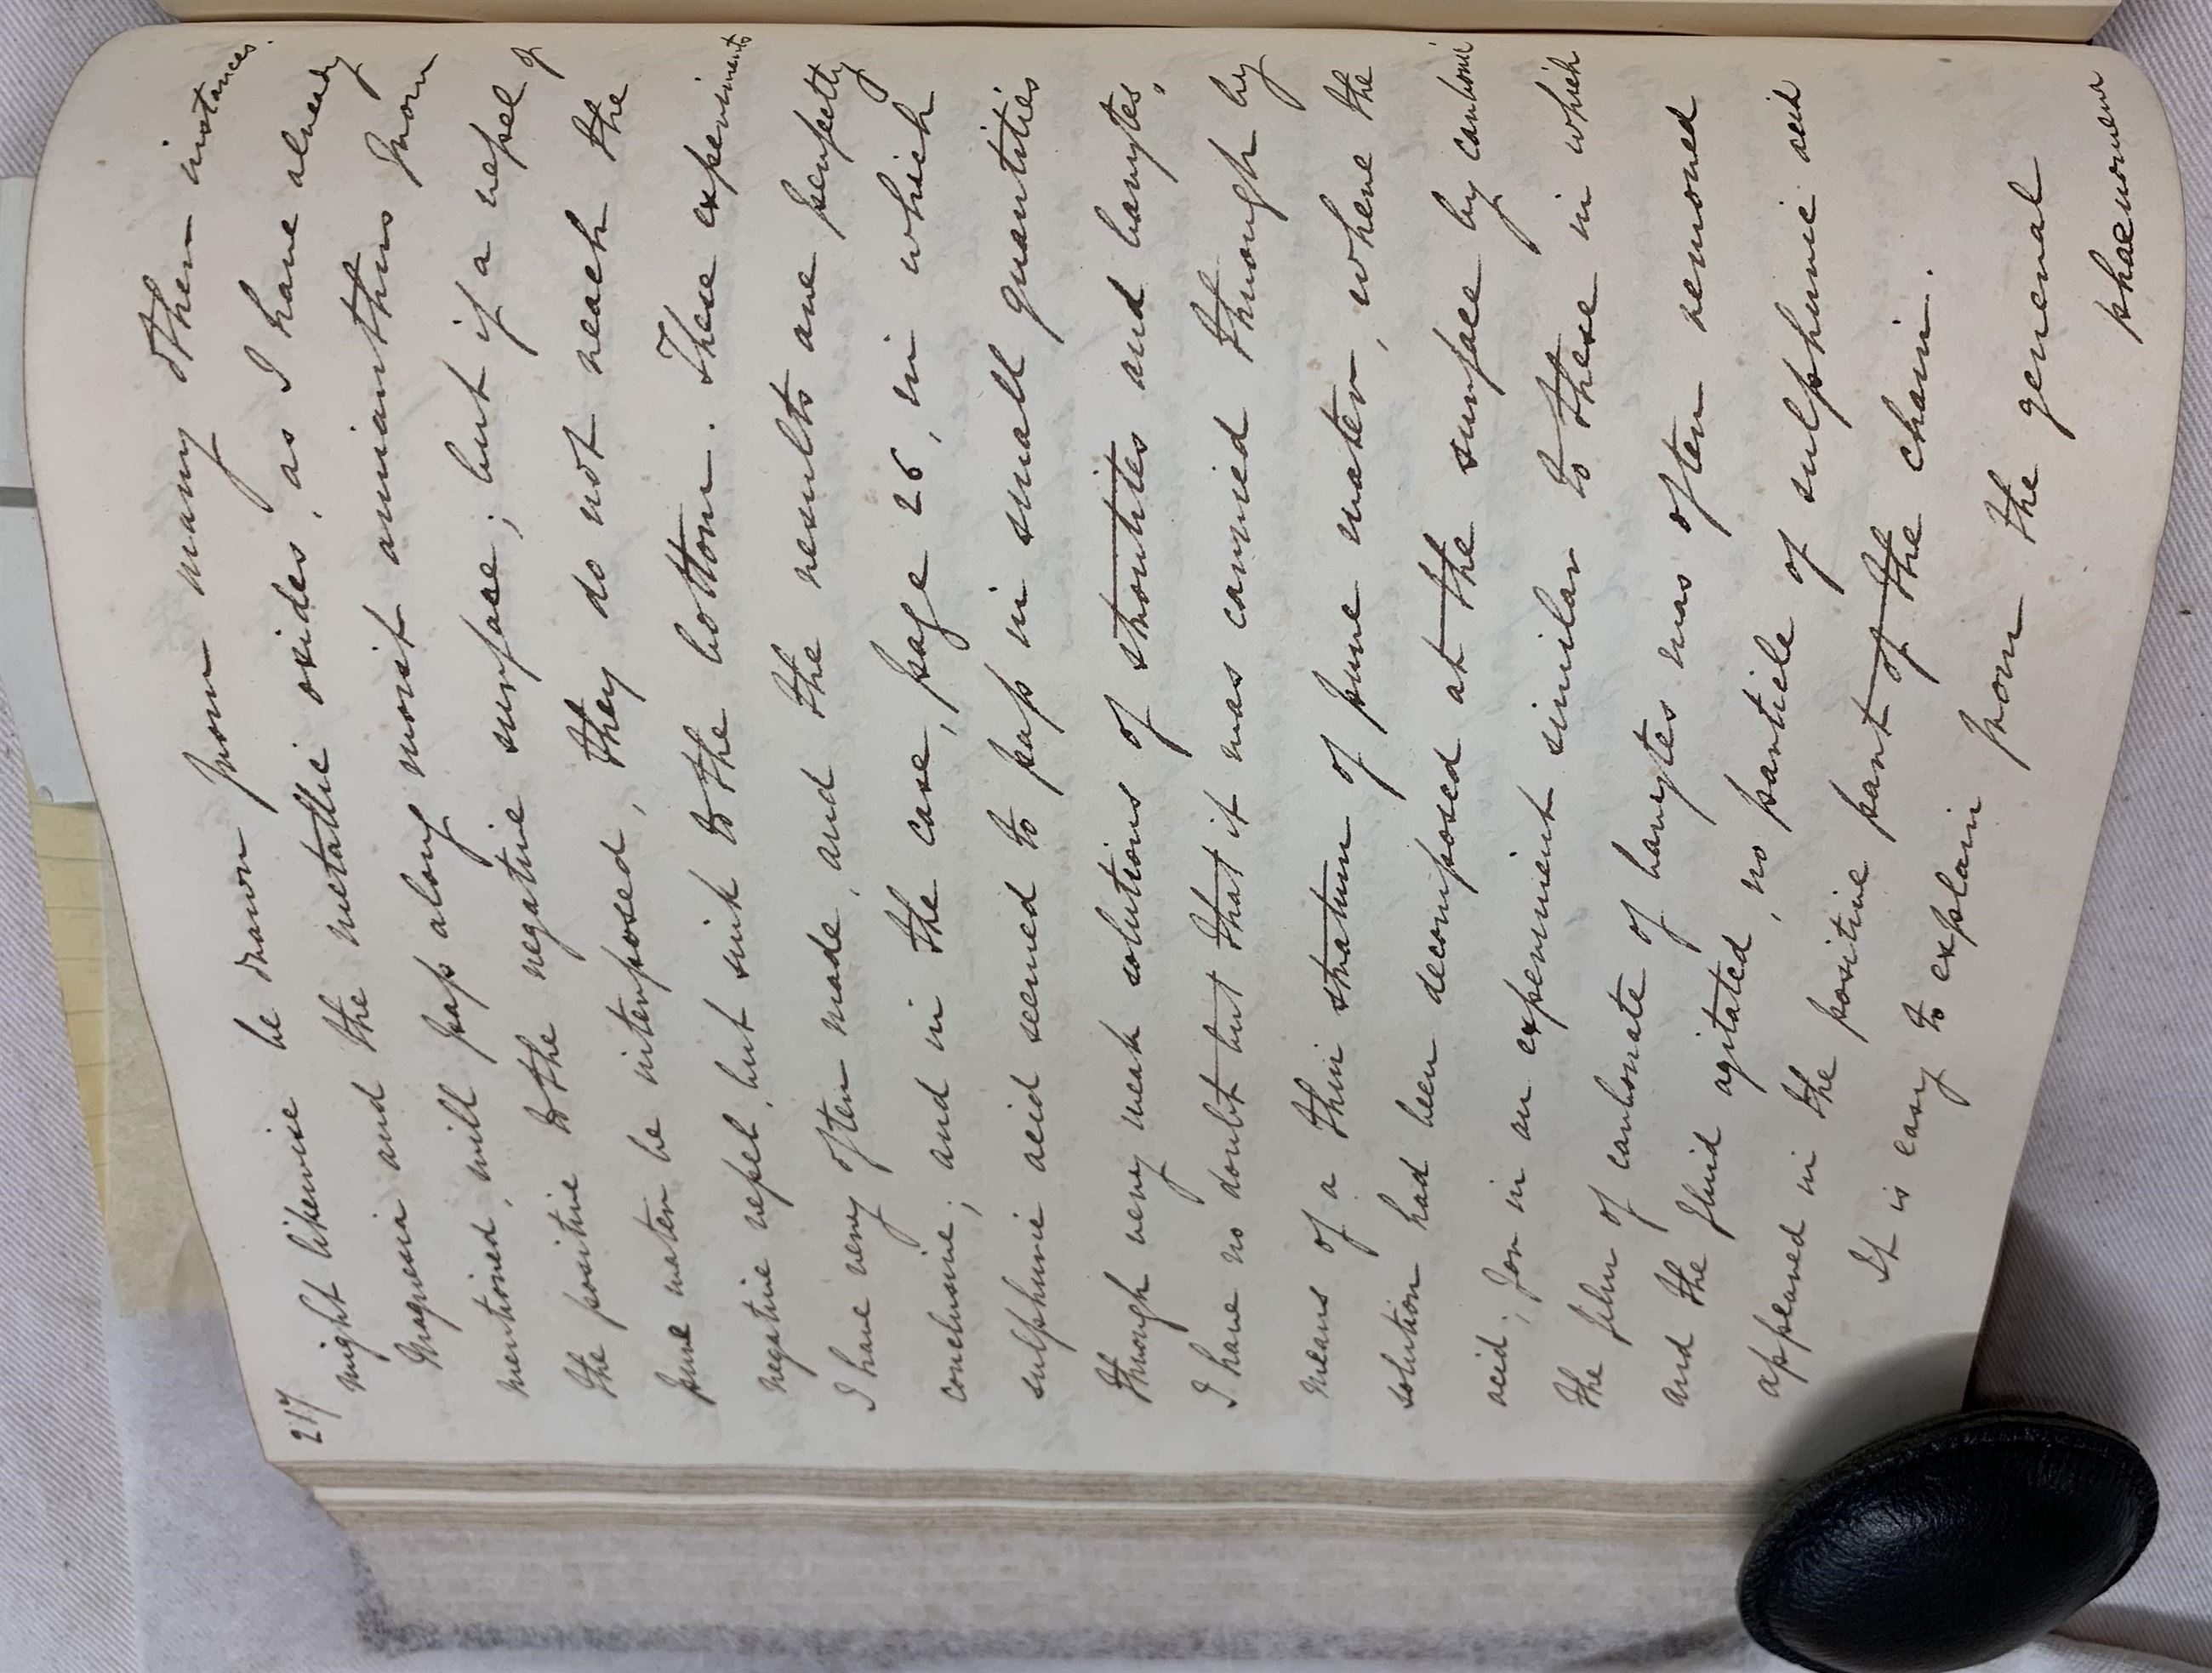 217
might likewise be drawn from many other instances.
Magnesia and the metallic oxides, as I have already
mentioned, will pass along moist amianthus from
the positive to the negative surface; but if a vessel of
pure water be interposed, they do not reach the
negative vessel, but sink to the bottom. These experiments
I have very often made, and the results are perfectly
conclusive; and in the case, page 26, in which
sulphuric acid seemed to pass in small quantities
through very weak solutions of strontites and barytes,
I have no doubt but that it was carried through by
means of a thin stratum of pure water, where the
solution had been decomposed at the surface by carbonic
acid; for in an experiment similar to these in which
the film of carbonate of barytes was often removed
and the fluid agitated, no particle of sulphuric acid
appeared in the positive part of the chain.
It is easy to explain from the general
phaenomena